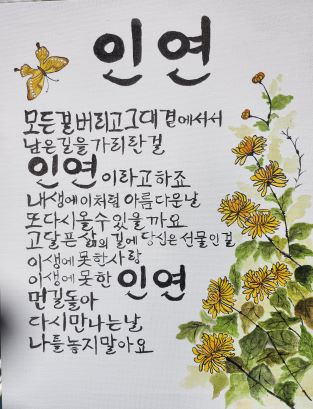 인연
모든걸버리고그대곁에서서
남은길을가리란걸
인연이라고하죠
내생에이처럼아름다운날
또다시올수있을까요
고달픈삶의길에당신은선물인걸
이생에못한사랑
이생에못한인연
먼길돌아
다시만나는날
나를놓지말아요